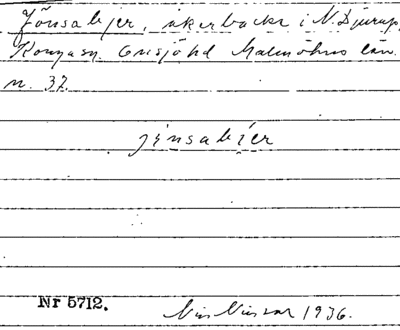 Jönsabjer, åkerbacke i N. Djurup,
Konga sn. Onsjö hd Malmöhus län.
n. 37.
jönsabjer
Nr 5712.
Nils Nilsson 1936.